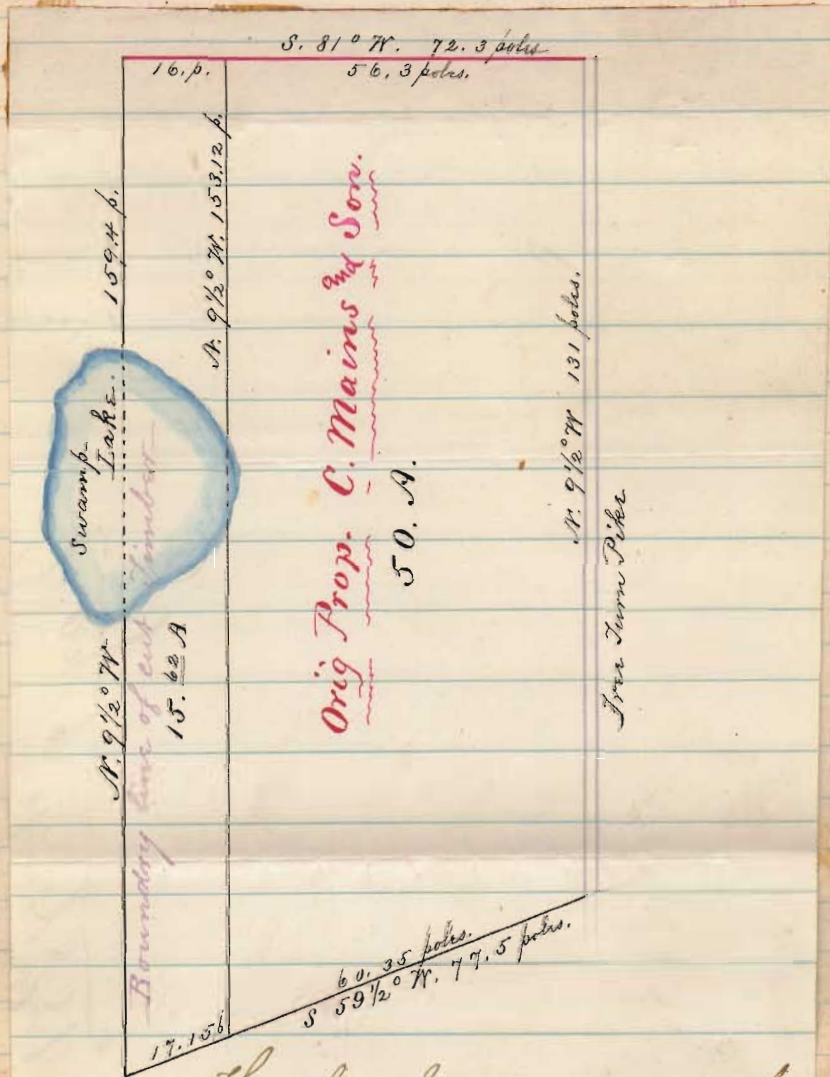 S. 81° W. 72.3 poles
16. p.
56.3 poles.
N. 9½° W. 159.4 p.
N. 9½° W. 153.12 p.
Swamp
Lake.
Boundry line of cut Timber
15.62 A
Orig Prop. C. Mains and Son.
50. A.
N. 9½° W 131 poles.
Free Turn Pike
60.35 poles.
S 59½° W. 77.5 poles.
17.156